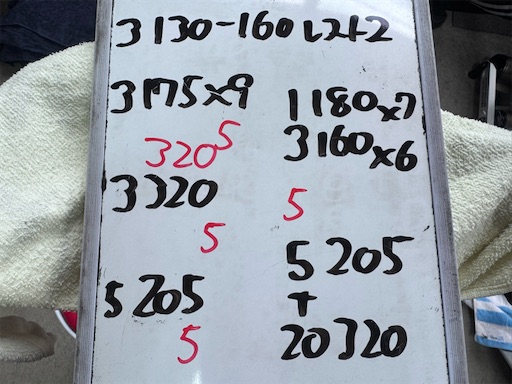 3130-160L2+2
3175x9
3205
3320
5
5205
5
1180x7
3160x6
5
5205
+
20320